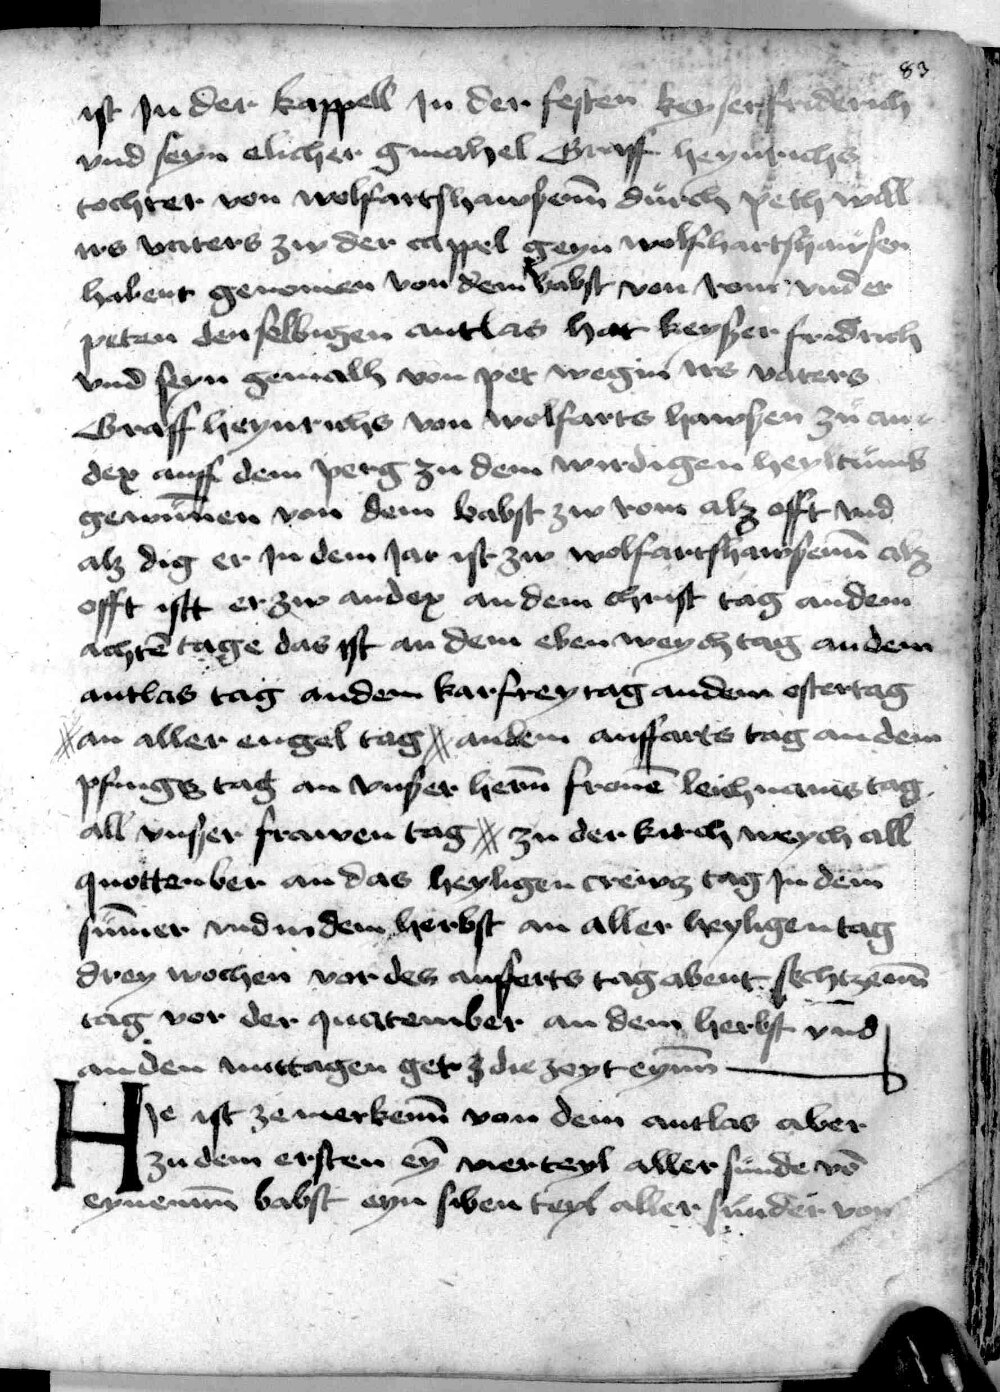 83
ist Jn der kappell Jn der festen keyser friderich
vnd seyn elicher gmahel Graff heynrichs
tochter von wolfartshawsenn̄ durch peth will
irs vaters zw der cappel geyn wolfhartshawsen
habent genomen von dem babst von rom vnd er
peten den selbigen antlas hat keyser fridrich
vnd seyn gemalh von pet wegin irs vaters
Graff heynrichs von wolfarts hawsen zu an
dex auff dem perg zu dem wirdigen heyltumb
gewun̄nen von dem babst zw rom alz offt vnd
alz dig er Jn dem Jar ist zw wolfartshawsenn̄ alz
offt istt er zw andex an dem christ tag an dem
achtē tage das ist an dem eben weych tag an dem
antlas tag an dem karfreytag an dem ostertag
an aller engel tag an dem auffarts tag an dem
pfingz tag an vnser hern̄ fronē leichnams tag
all vnsser frawen tag zu der kirch weych all
quottenber an das heyligen crewz tag Jn dem
sum̄er vnd in dem herbst an aller heyligen tag
drey wochen vor des aufferts tag abent sechtzenn̄
tag vor der quatember an dem herbst vnd
an den mittagen get die zeyt eynn̄
Hie ist ze merkenn̄ von dem antlas aber
zu dem ersten ey̅ vierteyl aller sunde vo̅
eynemm̄ babst eyn siben teyl aller sunder von